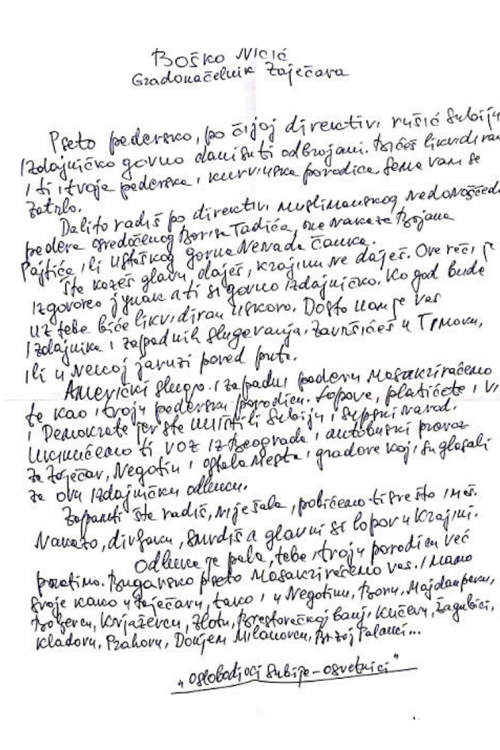 BOŠKO NIČIĆ
Gradonačelnik Zaječara
Pseto pedersko, po čijoj direktivi rušiš Srbiju
izdajničko govno dani su ti odbrojani. Bićeš likvidiran
i ti i tvoja pederska i kurvinska porodica, seme vam se
zatrlo.
Dali to radiš po direktivi muslimanskog nedonoščeta
pedera osvedočenog Borisa Tadića, one nakaze Bojana
Pajtića, ili ustaškog govna Nenada Čanka.
Šta kažeš glavu daješ, krajinu ne daješ. Ove reči je
izgovoreo junak a ti si govno izdajničko. Ko god bude
uz tebe biće likvidiran uskoro. Dosta nam je vas
izdajnika i zapadnih slugeranja. Završićeš u Timoku,
ili u nekoj jaruzi pored puta.
Američki slugo i zapadni pederu masakriraćemo
te kao i tvoju pedersku porodicu. Lopove, platićete i vi
i Demokrate jer ste uništili Srbiju i srpski narod.
ti voz iz Beograda i autobuski prevoz
za Zaječar, Negotin i ostala mesta i gradove koji su glasali
za ovu izdajničku odluku.
Zapamti šta radiš, nije šala, poličemo ti sve što imaš.
Nakazo, divljaku, smrdiš a glavni si lopov u Krajini.
Odluka je pala, tebe i tvoju porodicu već
pratimo. Bugarsko pseto masakriraćemo vas. Imamo
svoje kako u Zaječaru, tako i u Negotinu, Boru, Majdanpeku,
Boljevcu, Knjaževcu, Zlotu, Brestovačkoj banji, Kučevu, Žagubici,
Kladovu, Prahovu, Donjem Milanovcu, Brzoj Palanci...
"Oslobodioci Srbije - osvetnici"